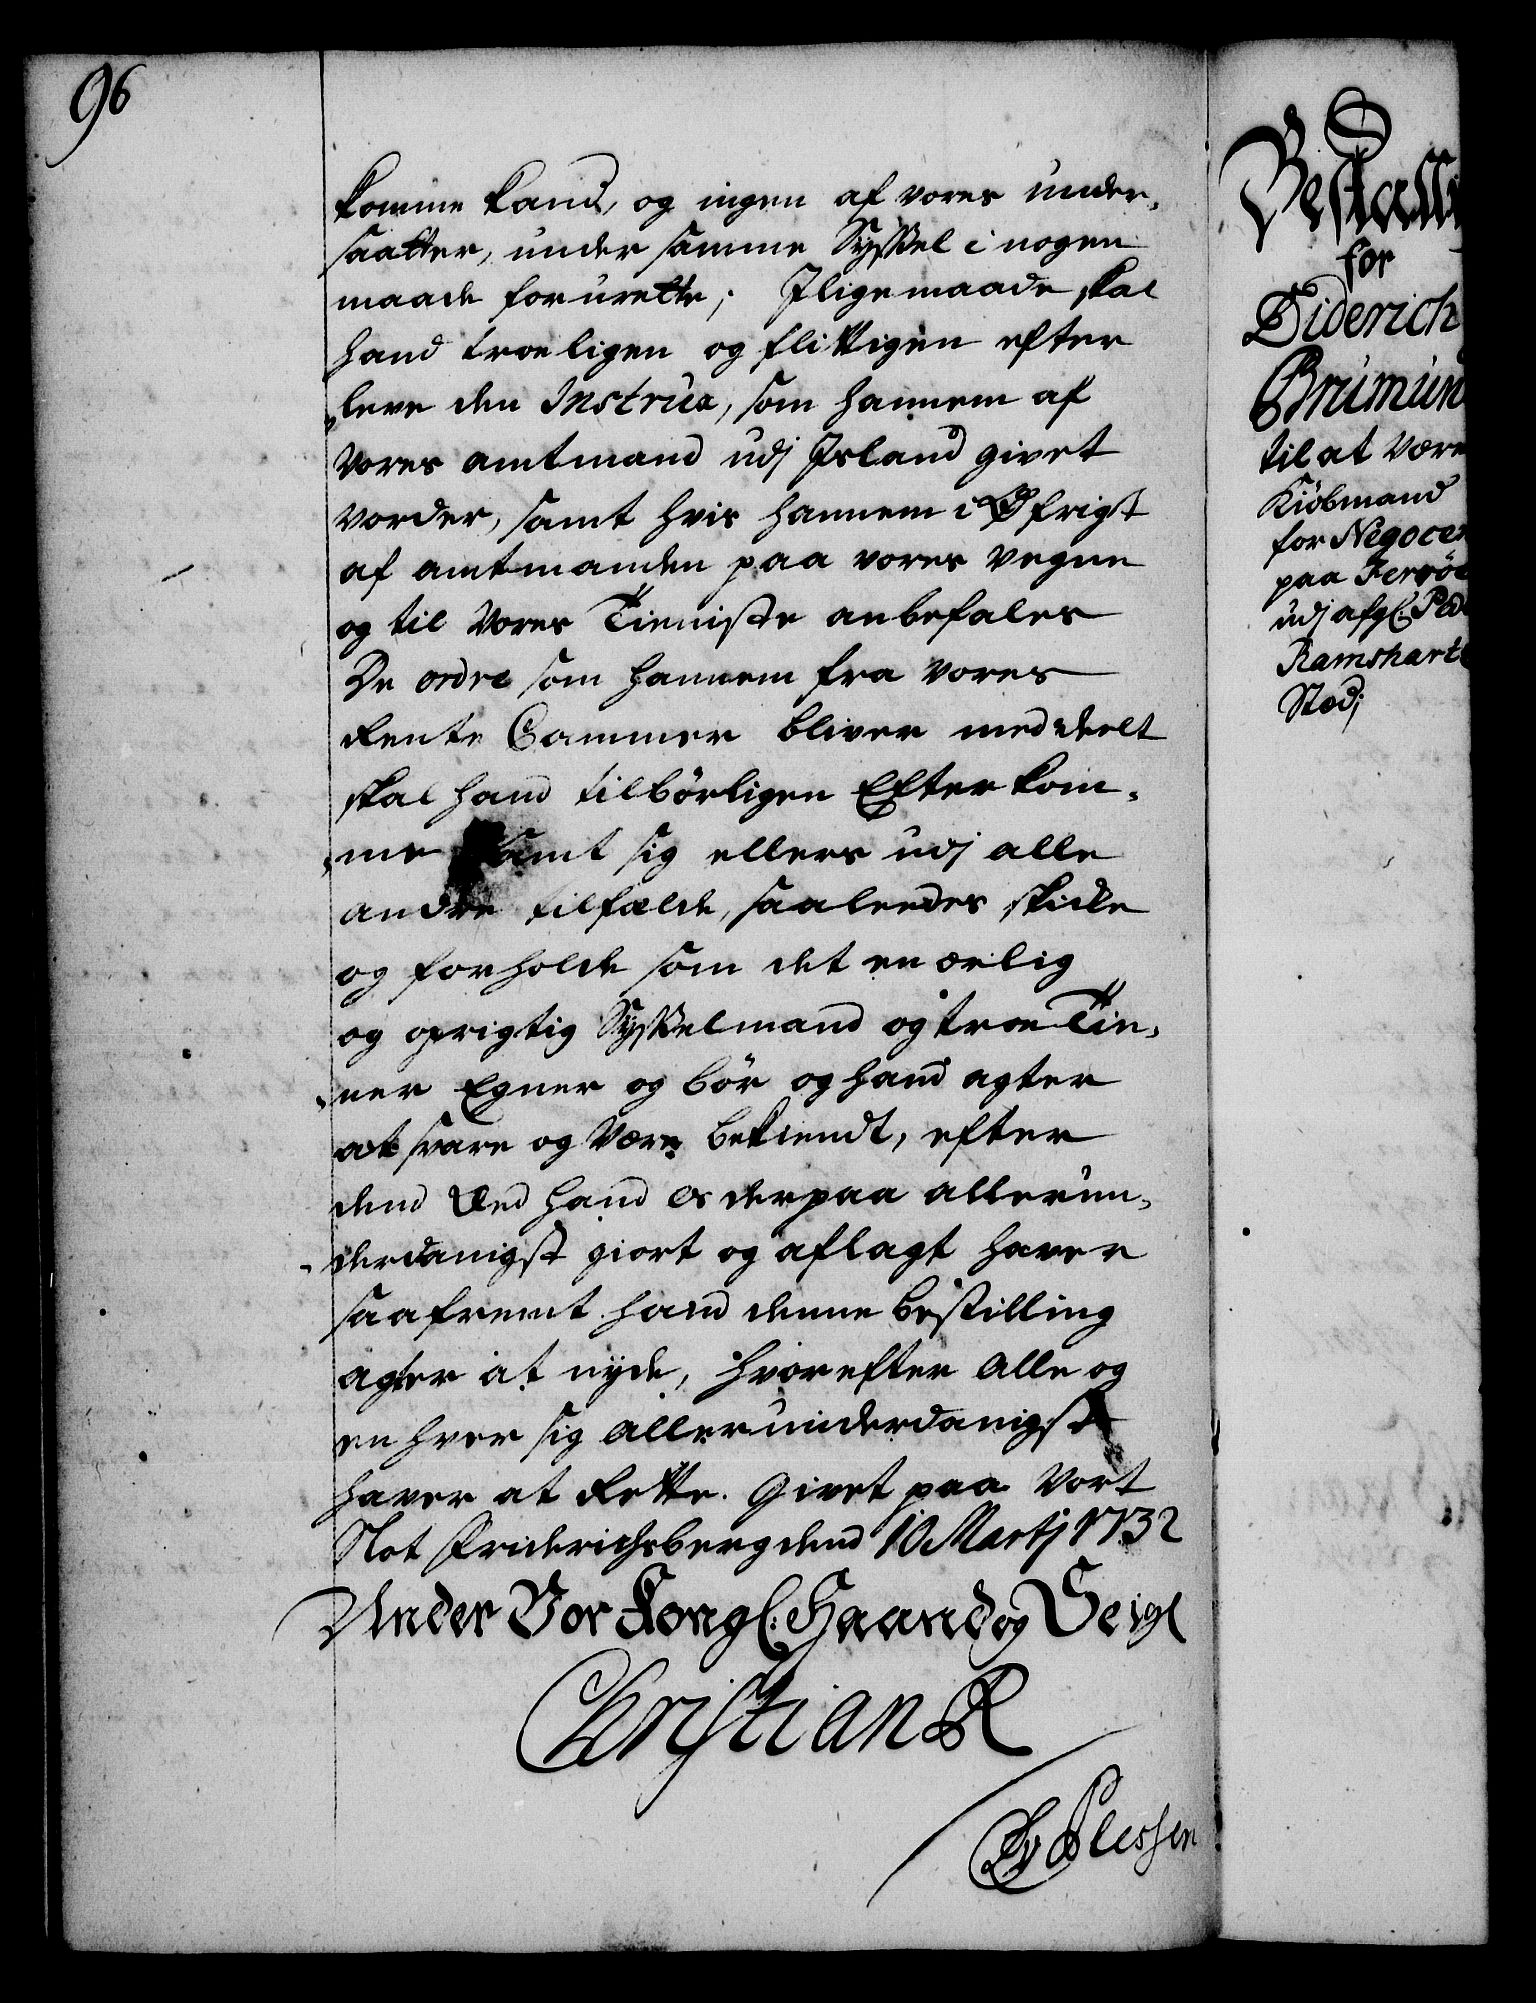 96
komme kand, og ingen af vores under,
saatter, under samme Syssel i nogen
maade forurette; Jligemaade skal
hand troeligen og flittigen efter
leve den Instrux, som hannem af
Vores amtmand udj Jsland givet
vorder, samt hvis hannem i Øfrigt
af amtmanden paa vores vegne
og til Vores Tieniste anbefales
De ordre som hannem fra vores
Rente Cammer bliver meddeelt
skal hand tilbörligen Efterkom,
,me samt sig ellers udj alle
andre tilfælde, saaleedes skicke
og forholde som det en ærlig
og oprigtig Sysselmand og troe Tie,
,ner Egner og bör og hand agter
at svare og Være bekiendt, efter
dend Eed hand os derpaa allerun,
derdanigst giort og aflagt haver
saafremt hand denne bestilling
agter at nyde, hvorefter Alle og
en hver sig allerunderdanigst
haver at Rette. Givet paa Vort
Slot Friderichsberg dend 10 Martj 1732
Under Vor Kongl: Haand og Seigl
Christian R
CAvPlessen
Bestalli
for
Diderich
Grumun
til at Være
Kiöbmand
for Negocen
paa Ferröe
udj afgl: Ped
Ramshart
Sted;